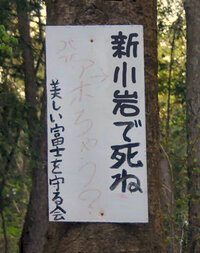 新小岩で死ね
アホちゃう？
美しい富士を守る会